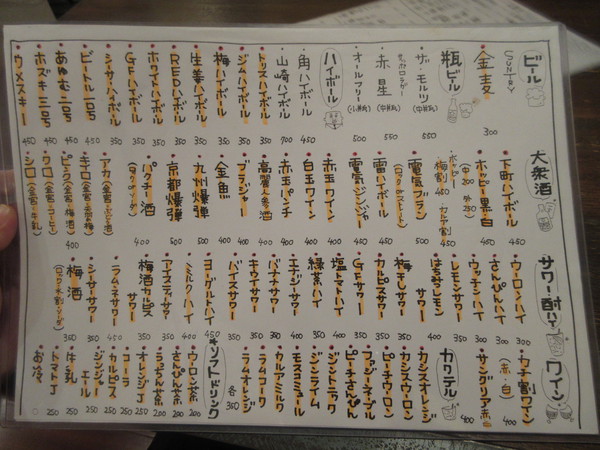 ビール
SUNTRY
金麦
300
瓶ビール
ザ・モルツ
(中瓶)
550
サッポロラガー
赤星
(中瓶)
550
オールフリー
(小瓶)
500
ハイボール
角ハイボール
400
山崎ハイボール
700
トリスハイボール
350
ジムハイボール
350
梅ハイボール
350
生姜ハイボール
350
REDハイボール
350
ホワイトハイボール
350
GFハイボール
350
シーサーハイボール
350
ビートル一〇号
450
あゆむ二号
450
ホズキ三号
450
ウメスキー
450
大衆酒
下町ハイボール
450
ホッピー 黒・白
450
ホイピー
梅割 カルア割
450
電気ブラン
400
雷ハイボール
400
電気ジンジャー
400
赤玉ワイン
400
白玉ワイン
400
赤玉パンチ
400
高麗人参酒
400
ブラジャー
400
金魚
400
九州爆弾
500
京都爆弾
500
パクチー酒
400
アカ
キミロ
ピンク
400
ウロ
シロ (金宮・牛乳)
サワー・酎ハイ
ウーロンハイ
300
さんぴんハイ
300
ウッチンハイ
300
レモンサワー
300
はちみつレモン
サワー
400
梅干しサワー
350
カルピスサワー
350
GFサワー
350
塩トマトハイ
350
緑茶ハイ
350
エナジーサワー
350
バナナサワー
350
キウイサワー
350
バイスサワー
350
ヨーグルトハイ
450
ハミルクハイ
アイスティサワー
梅酒カルピス
サワー
ラムネサワー
シーサーサワー
梅酒
(ロック・水割・ソーダ)
ワイン
カチ割ワイン
(赤・白)
400
サングリア 赤・白
400
カクテル
カシスオレンジ
カシスウーロン
ピーチウーロン
ファジーネーブル
ピーチさんぴん
ジントニック
ジンライム
モスコミュール
カルアミルク
ラムコーク
ラムオレンジ
各350
ソフトドリンク
ウーロン茶
200
さんぴん茶
200
うっちん茶
200
オレンジJ
250
コーラ
250
カルピス
250
ジンジャーエール
250
牛乳
250
トマトJ
250
お冷
0